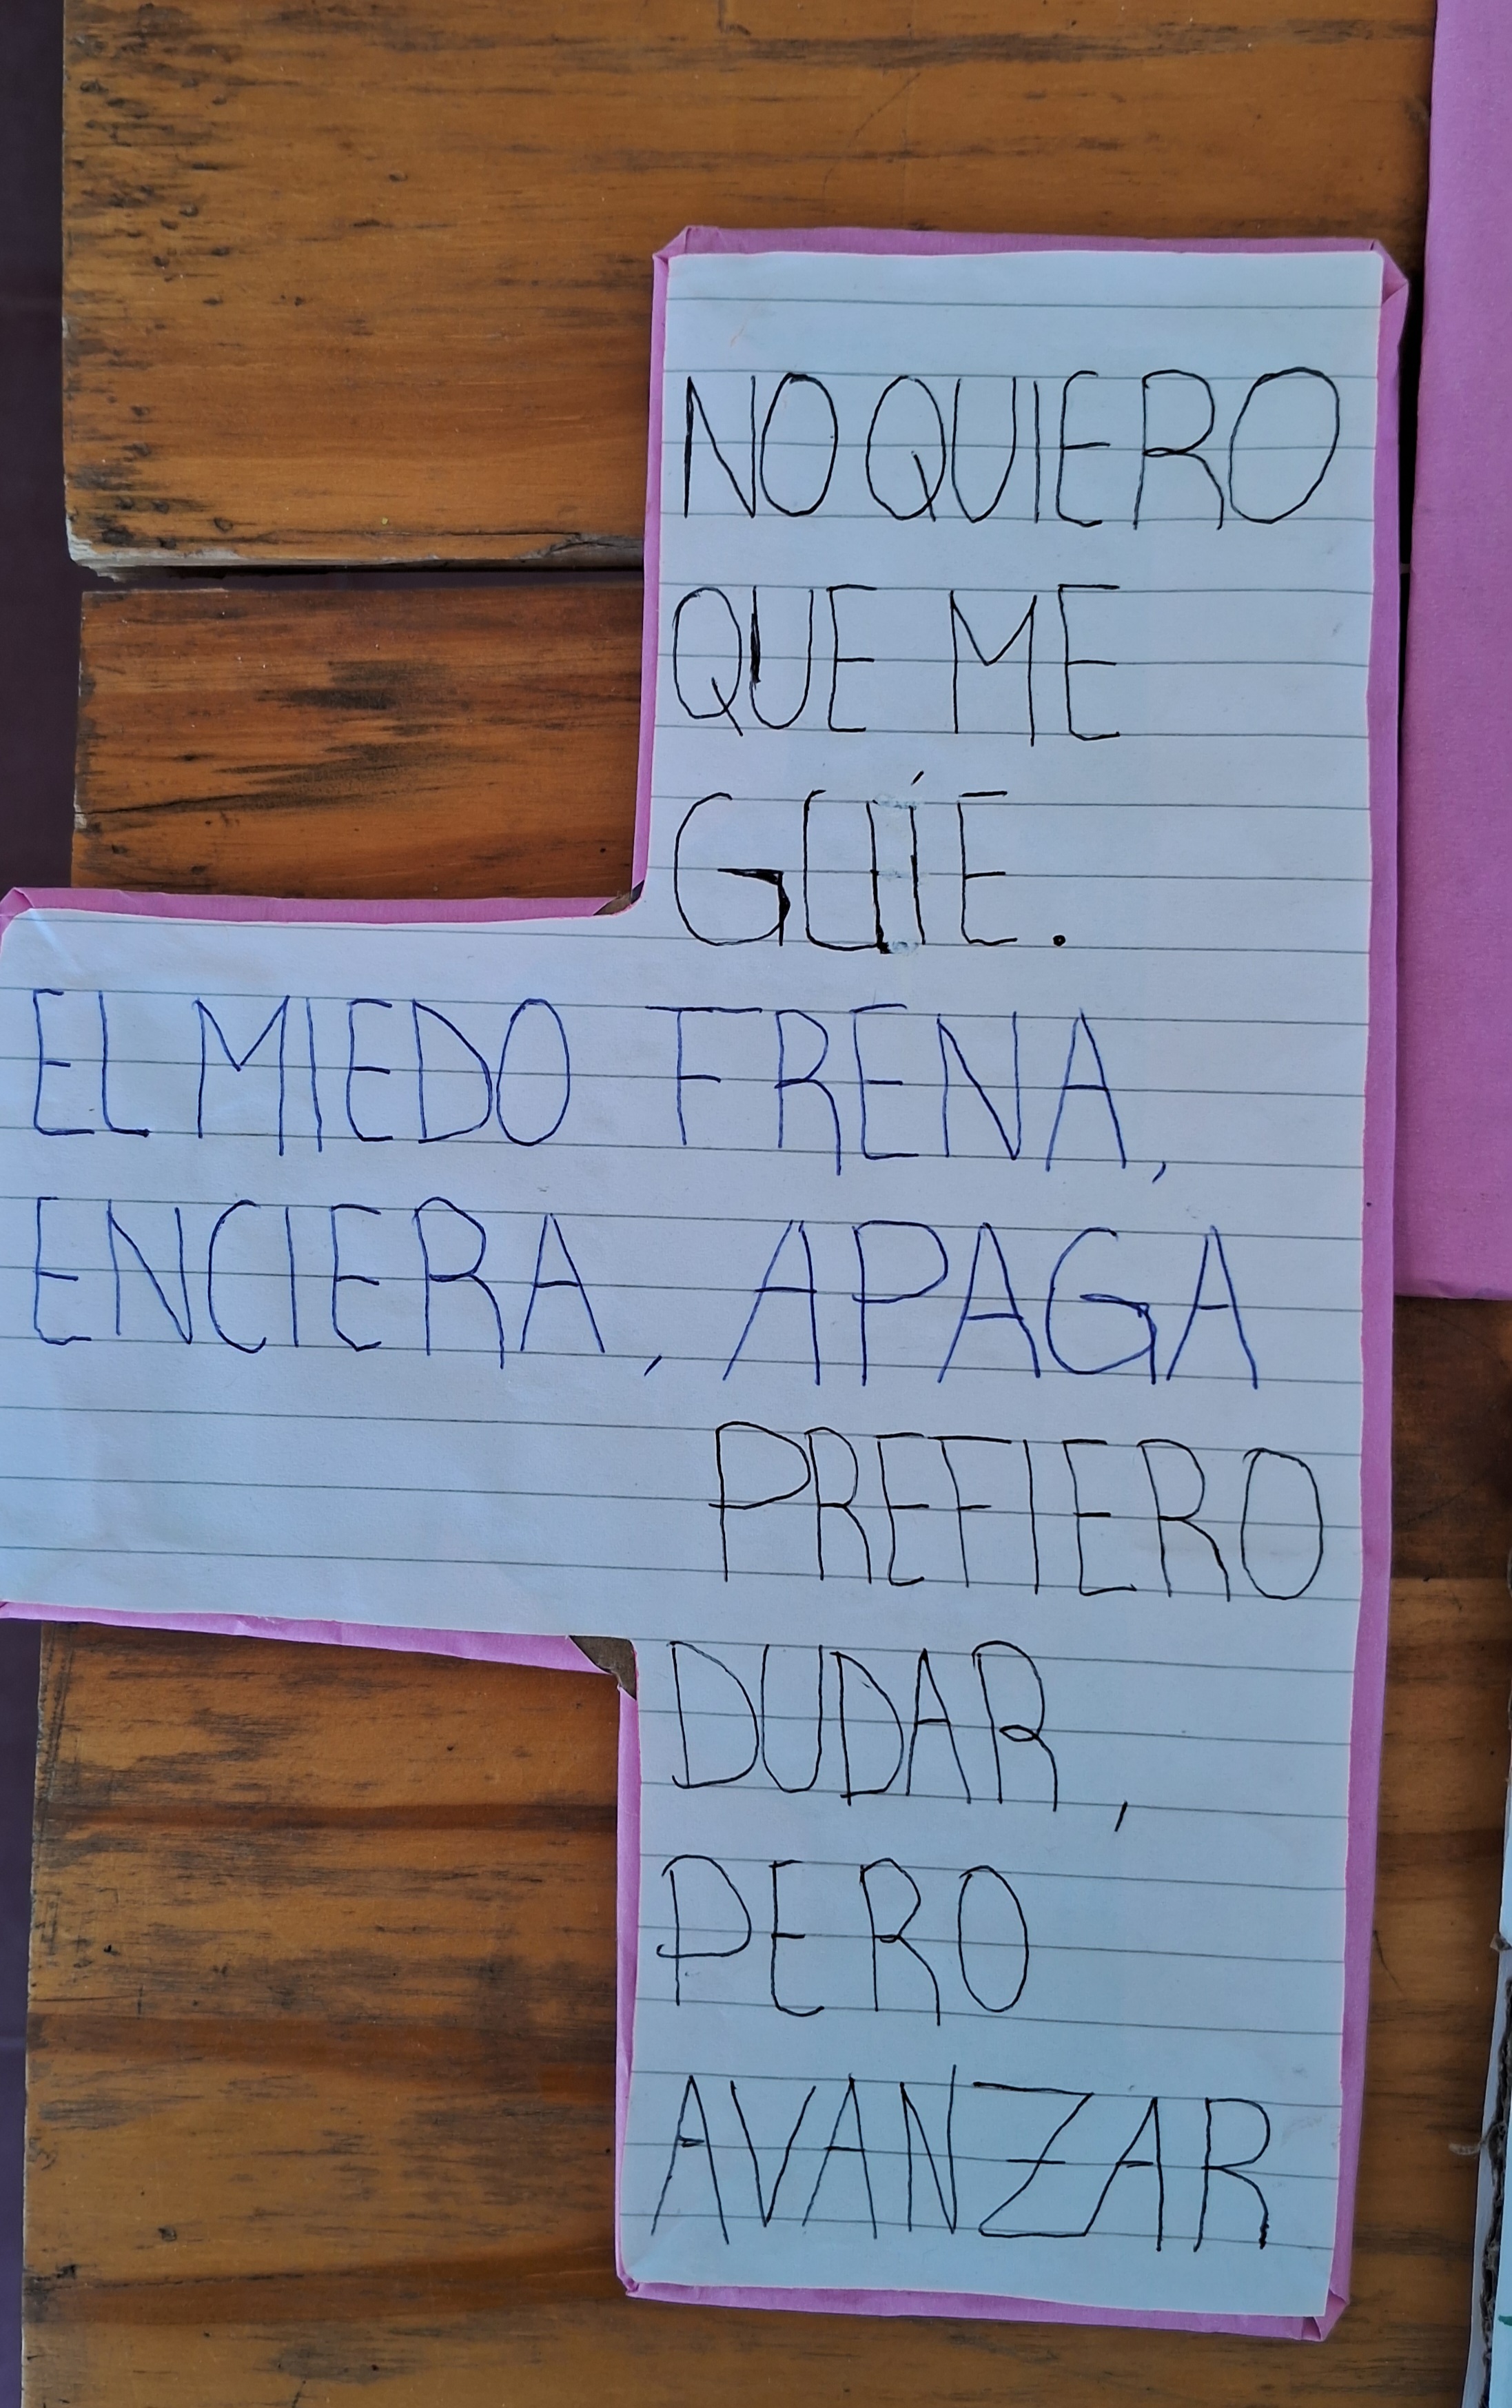 NO QUIERO
QUE ME
GUÍE.
EL MIEDO FRENA,
ENCIERA, APAGA
PREFIERO
DUDAR,
PERO
AVANZAR